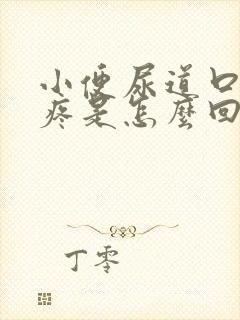 小便尿道口
疼是怎麼回
丁零